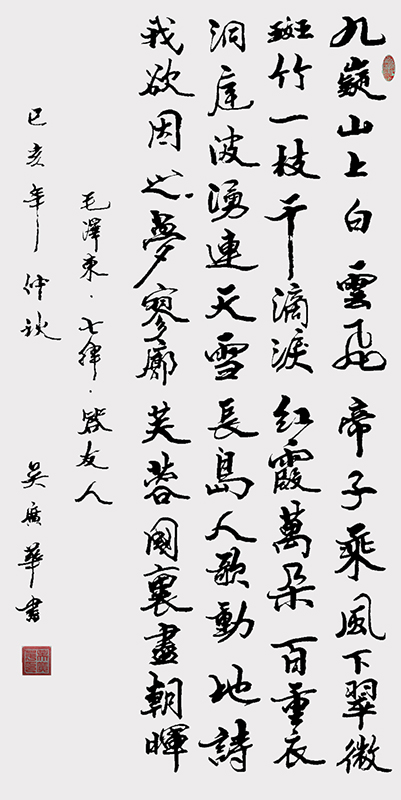 九嶷山上白雲飛帝子乘風下翠微
斑竹一枝千滴淚紅霞萬朵百重衣
洞庭波湧連天雪長島人歌動地詩
我欲因之夢寥廓芙蓉國裏盡朝暉
毛澤東·七律·答友人
己亥年仲秋 吳廣華書